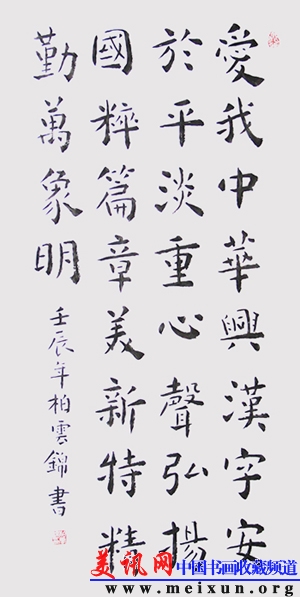 愛我中華興漢字安
於平淡重心聲弘揚
國粹篇章美新特精
勤萬象明
壬辰年柏雲錦書
美讯网 中国书画收藏频道
www.meixun.org